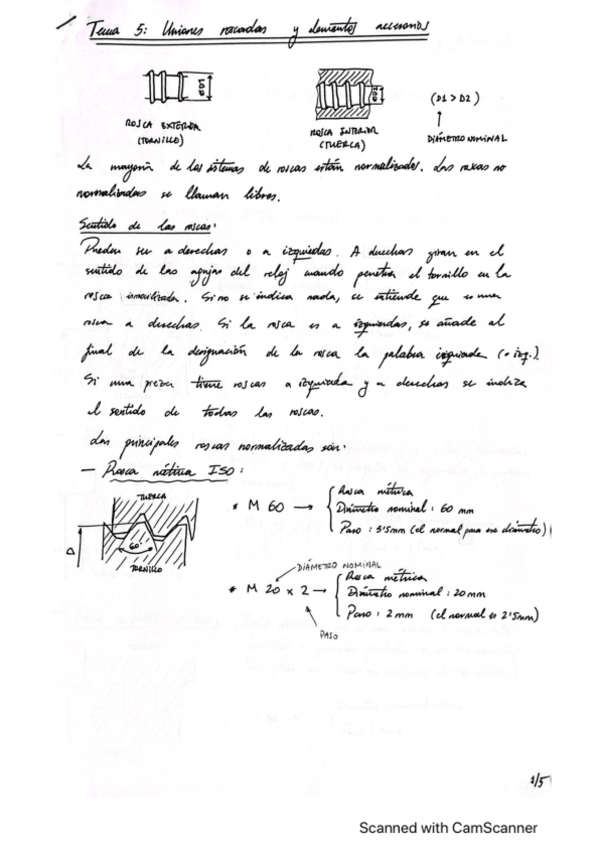 Tema 5: Uniones roscadas y elementos accesorios
ROSCA EXTERIOR
(TORNILLO)
ROSCA INTERIOR
(TUERCA)
(D1 > D2)
DIÁMETRO NOMINAL
La mayoría de los sistemas de roscas están normalizados. Las roscas no
normalizadas se llaman libres.
Sentido de las roscas:
Pueden ser a derechas o a izquierdas. A derechas giran en el
sentido de las agujas del reloj cuando penetra el tornillo en la
rosca inmovilizada. Si no se indica nada, se entiende que es una
rosca a derechas. Si la rosca es a izquierdas, se añade al
final de la designación de la rosca la palabra izquierda (o izq.).
Si una pieza tiene roscas a izquierda y a derechas se indica
el sentido de todas las roscas.
Las principales roscas normalizadas son:
— Rosca métrica ISO:
TUERCA
60°
TORNILLO
D
* M 60 → Rosca métrica
Diámetro nominal: 60 mm
Paso: 5'5mm (el normal para ese diámetro)
DIÁMETRO NOMINAL
* M 20 x 2 → Rosca métrica
Diámetro nominal: 20 mm
Paso: 2 mm (el normal es 2'5mm)
PASO
1/5
Scanned with CamScanner